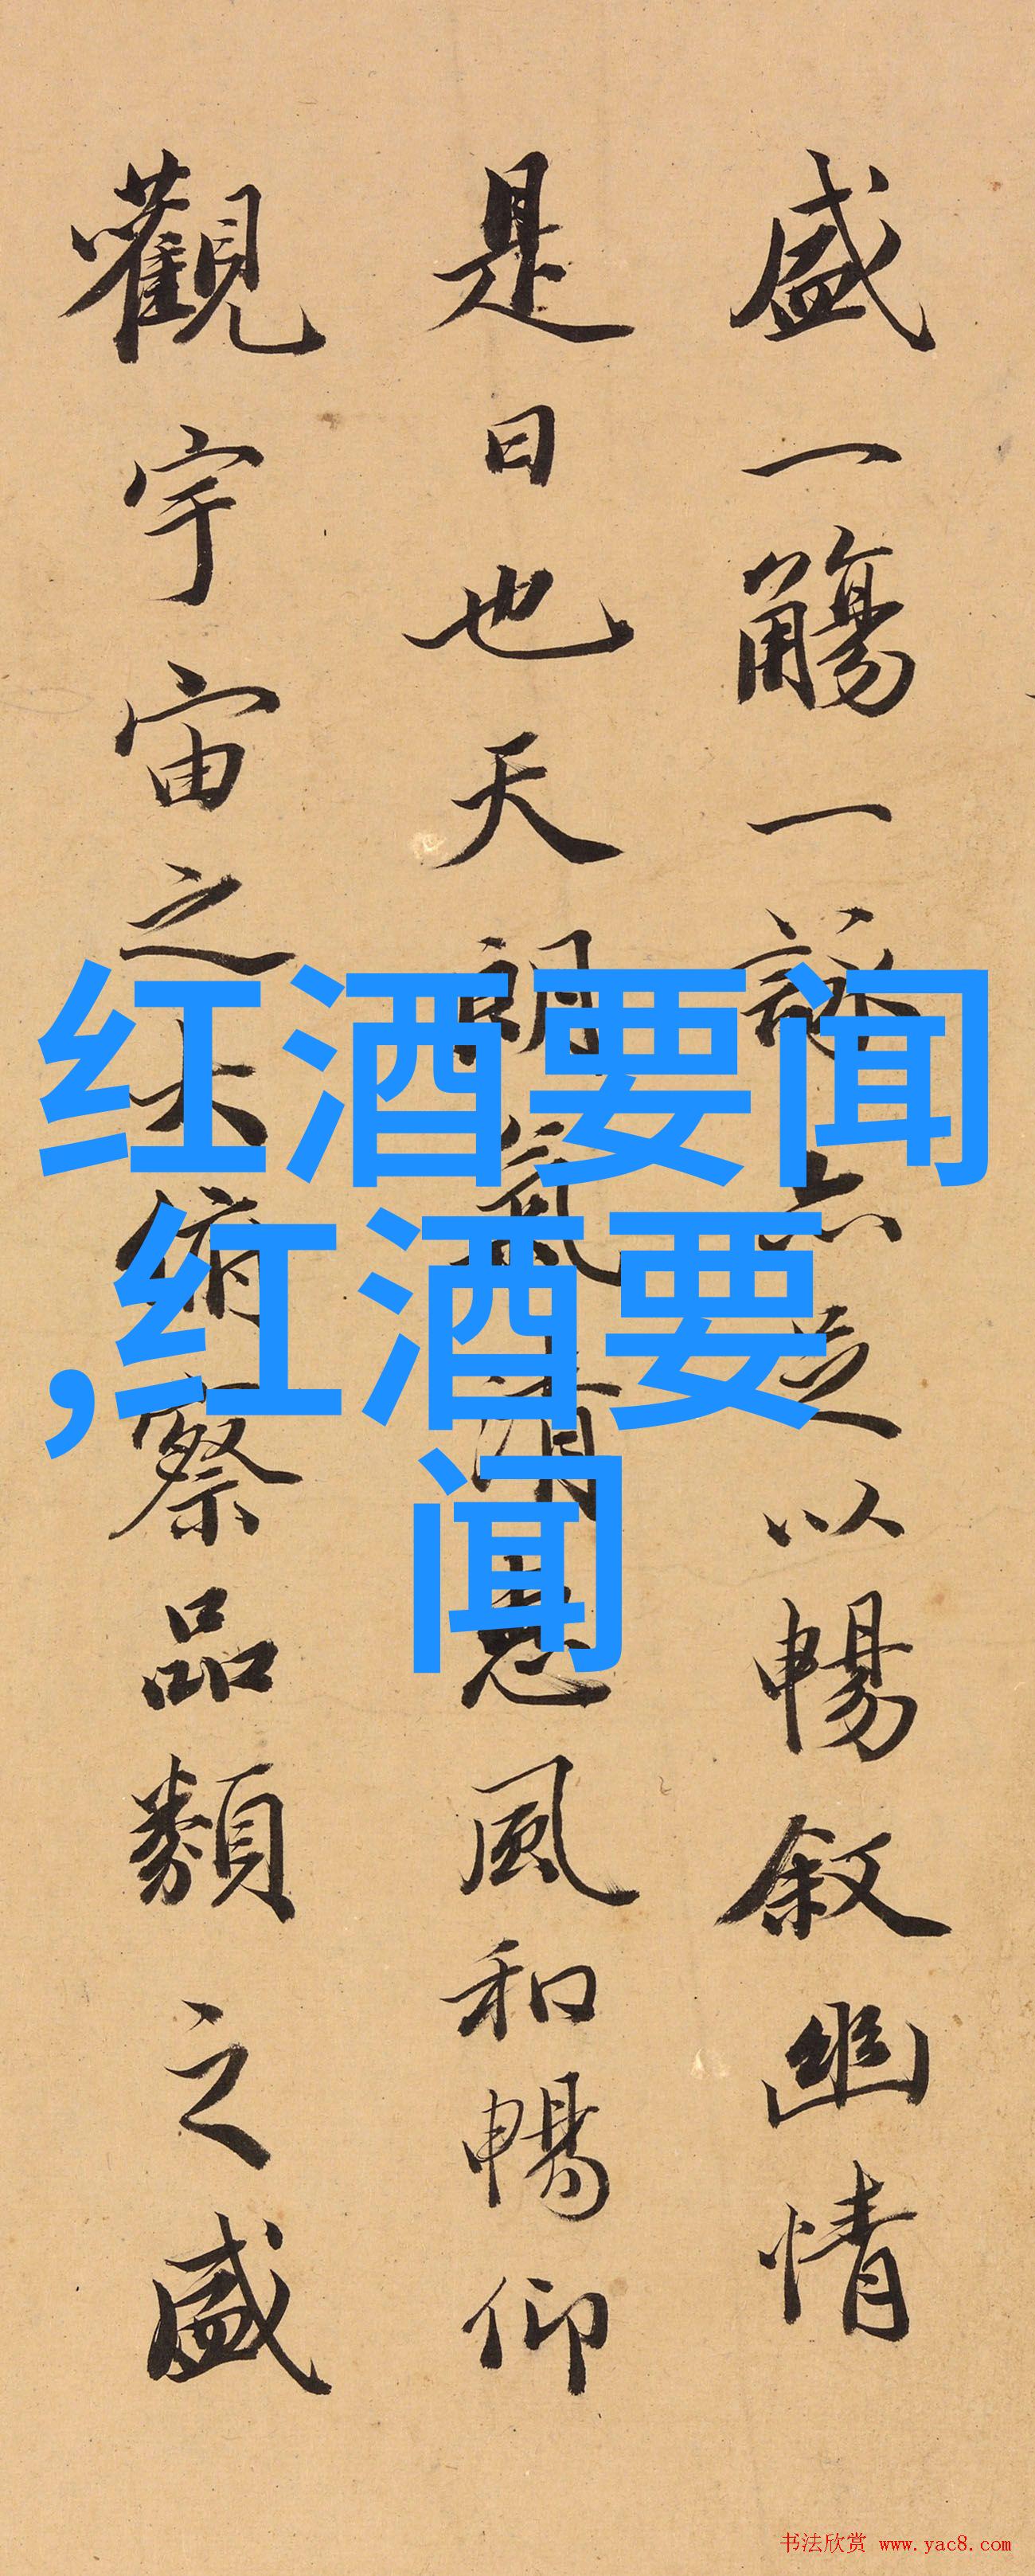 盛一觴一詠亦足以暢叙幽情
是日也天朗氣清惠風和暢仰
觀宇宙之大俯察品類之盛
红酒要闻
,红酒要
闻
书法欣赏 www.yac8.com